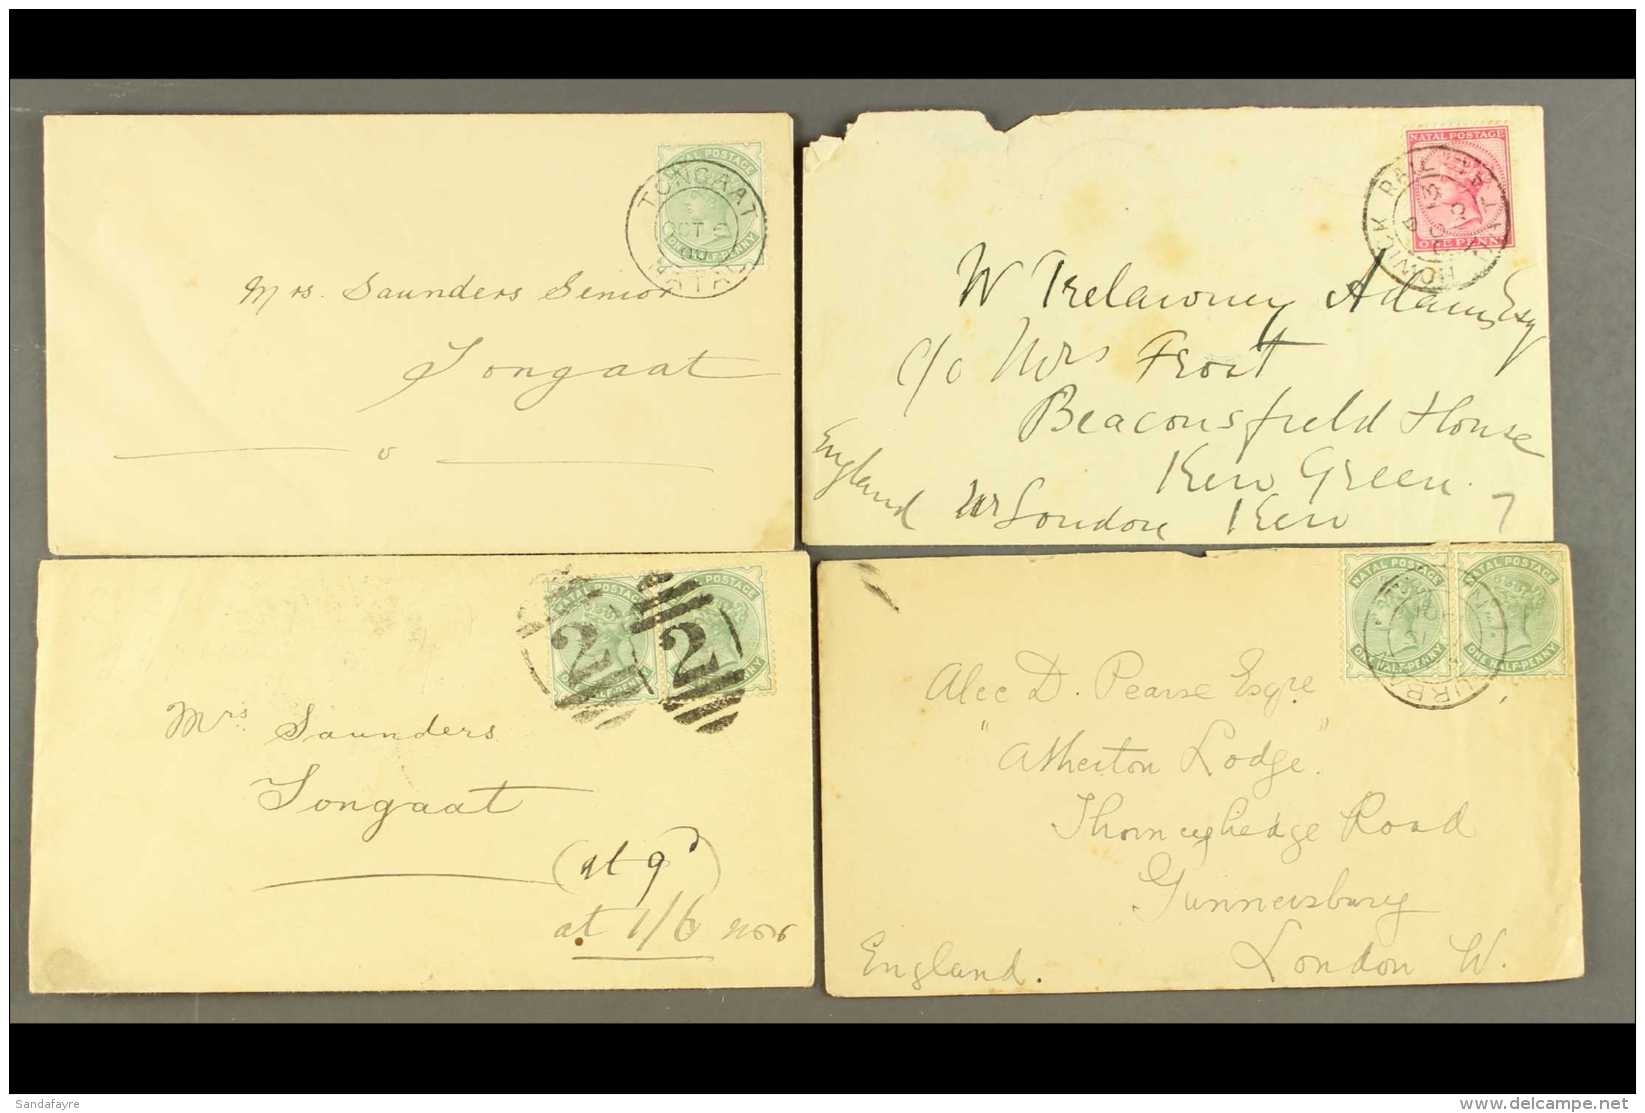 NATAL POSTAGE
TONGAAT
OCT
HALF-PENNY
NATAL
Mrs. Saunders Senior
Tongaat
NATAL POSTAGE
HOWICK RAIL
ONE PENNY
W Trelawney Adams, Esq
c/o Mrs Frost
Beaconsfield House
Kew Green.
England nr London Kew 7
NATAL POSTAGE
NATAL POSTAGE
2 2
ONE HALF-PENNY
HALF-PENNY
Mrs. Saunders
Tongaat
(at 9d)
at 1/6
NATAL POSTAGE
NATAL POSTAGE
DURBAN
ONE HALF-PENNY
ONE HALF-PENNY
Alec D. Pearse Esqre
"Atherton Lodge".
Road
Gunnersbury
England. London W.
Sandafayre
delcampe.net